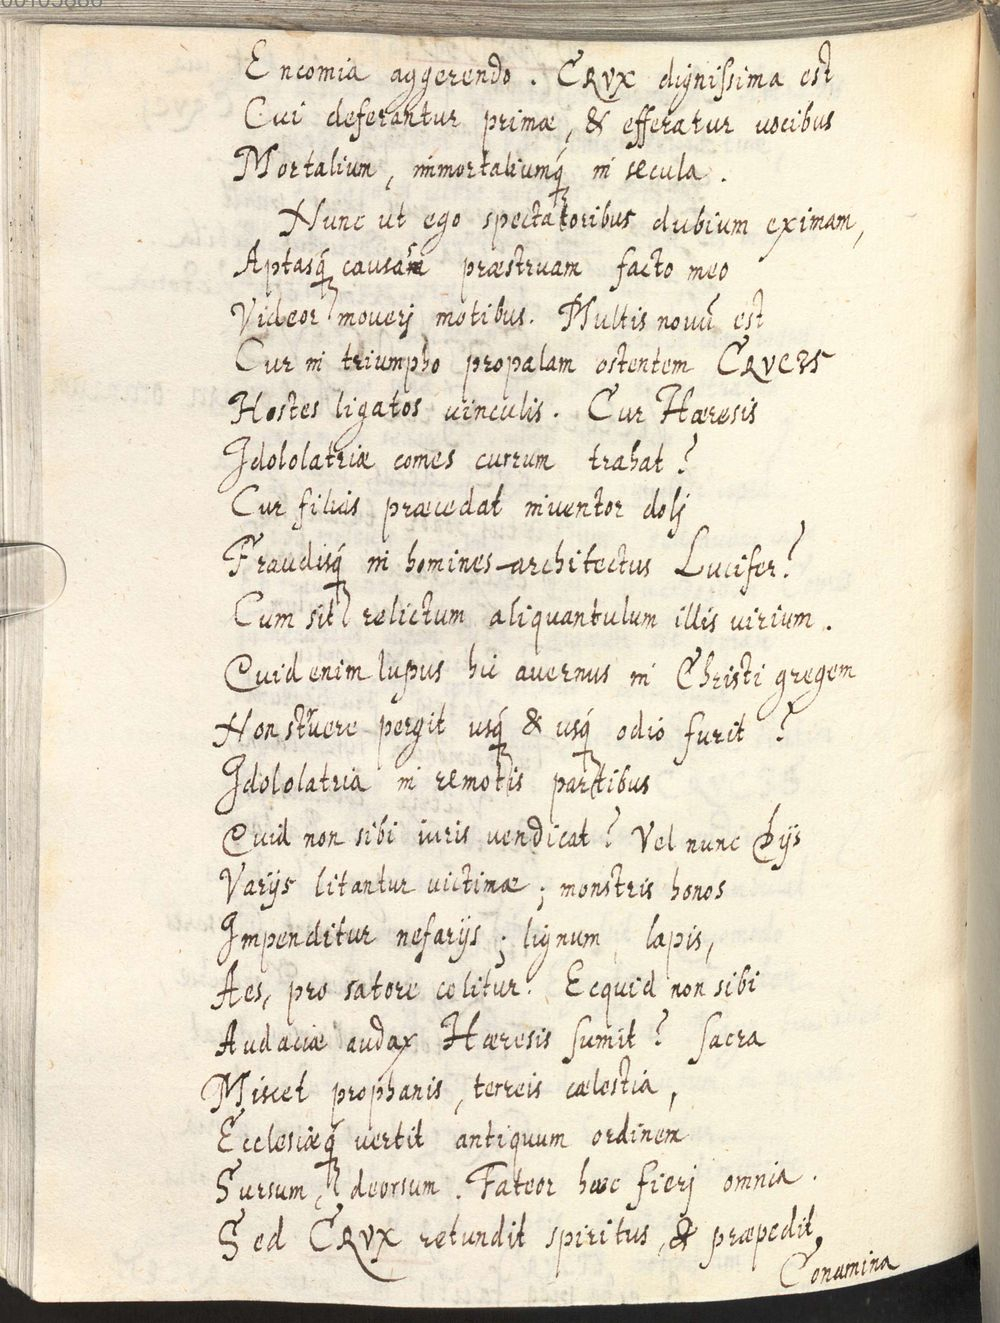 Encomia aggerendo. CRVX dignissima est
Cui deferantur primæ, & efferatur vocibus
Mortalium, immortaliumq́ꝫ in secula.
Nunc ut ego spectatoribus dubium eximam,
Aptasq́ꝫ causas præstruam facto meo
Videor moverj motibus. Multis novū est
Cur in triumpho propalam ostentem CRVCIS
Hostes ligatos vinculis. Cur Hæresis
Idololatriæ comes currum trahat?
Cur filias præcedat inventor dolj
Fraudisq́ꝫ in homines architectus Lucifer?
Cum sit relictum aliquantulum illis virium.
Quid enim lupus hic avernus in Christi gregem
Non struere pergit usq́ꝫ & usq́ꝫ odio furit?
Idololatria in remotis partibus
Quid non sibi iuris vendicat? Vel nunc Dijs
Varijs litantur victimæ; monstris honos
Impenditur nefarijs; lignum, lapis,
Aes, pro satore colitur. Ecquid non sibi
Audaciæ audax Hæresis sumit? sacra
Miscet prophanis, terreis cælestia,
Ecclesiæq́ꝫ vertit antiquum ordinem
Sursum, deorsum. Fateor hæc fierj omnia.
Sed CRVX retundit spiritus, & præpedit,
Conamina